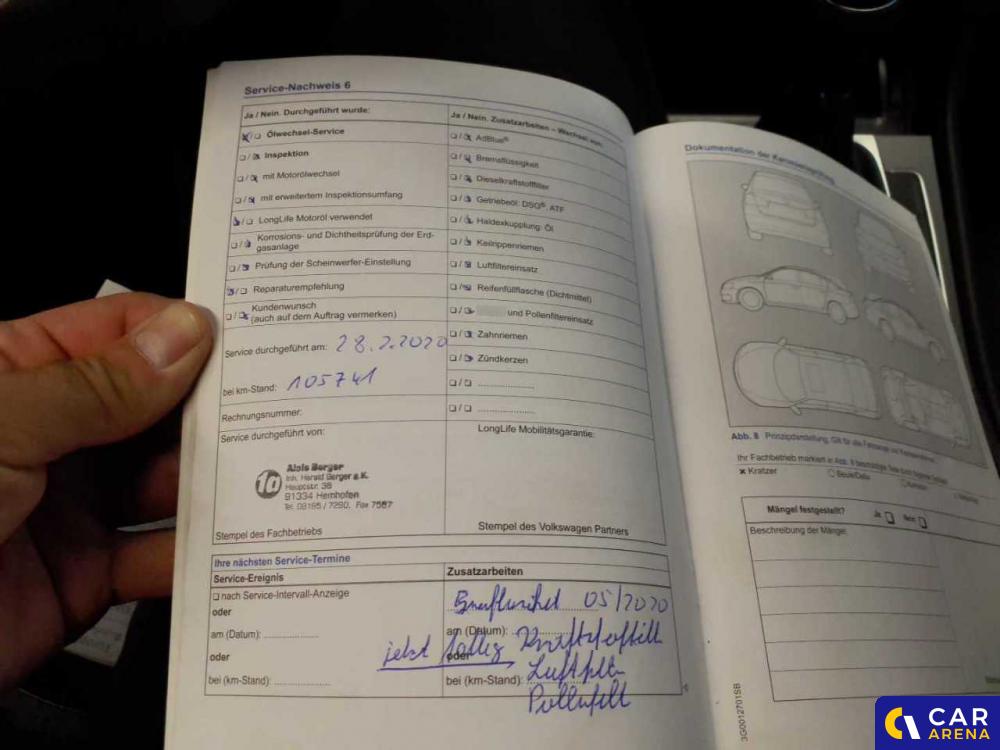 Service-Nachweis 6
Ja / Nein. Durchgeführt wurde:
Ölwechsel-Service
Inspektion
mit Motorölwechsel
mit erweitertem Inspektionsumfang
LongLife Motoröl verwendet
Korrosions- und Dichtheitsprüfung der Erd-
gasanlage
Prüfung der Scheinwerfer-Einstellung
Reparaturempfehlung
Kundenwunsch
(auch auf dem Auftrag vermerken)
Service durchgeführt am: 28.2.2020
bei km-Stand: 105741
Rechnungsnummer:
Service durchgeführt von:
1a
Alois Berger
Inh. Harald Berger e.K.
Hauptstr. 36
91334 Hemhofen
Tel. 09195 / 7290, Fax 7587
Stempel des Fachbetriebs
Ja / Nein. Zusatzarbeiten – Wechsel von:
AdBlue®
Bremsflüssigkeit
Dieselkraftstofffilter
Getriebeöl: DSG®, ATF
Haldexkupplung: Öl
Keilrippenriemen
Luftfiltereinsatz
Reifenfüllflasche (Dichtmittel)
und Pollenfiltereinsatz
Zahnriemen
Zündkerzen
LongLife Mobilitätsgarantie:
Stempel des Volkswagen Partners
Ihre nächsten Service-Termine
Service-Ereignis
nach Service-Intervall-Anzeige
oder
am (Datum):
oder
bei (km-Stand):
Zusatzarbeiten
05/2020
am (Datum):
jetzt fällig
oder
bei (km-Stand): Luftfilt
Pollenfilt
Dokumentation der Karosserieprüfung
Abb. 8 Prinzipdarstellung, Gilt für alle Fahrzeuge
Ihr Fachbetrieb markiert in Abb. 8
Kratzer
Beule/Delle
Mängel festgestellt? Ja Nein
Beschreibung der Mängel:
3G0012701SB
CAR
ARENA